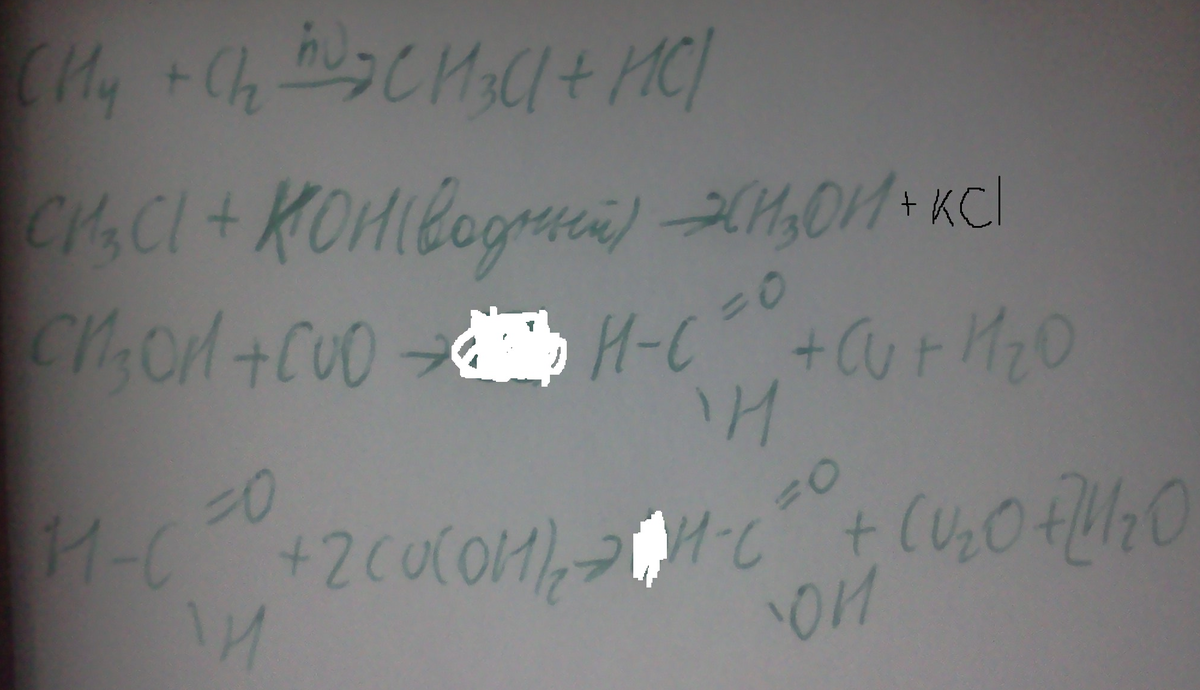 CH₄ + Cl₂ →(hν) CH₃Cl + HCl
CH₃Cl + KOH(водный) → CH₃OH + KCl
CH₃OH + CuO → H-C(=O)\H + Cu + H₂O
H-C(=O)\H + 2Cu(OH)₂ → H-C(=O)\OH + Cu₂O + 2H₂O